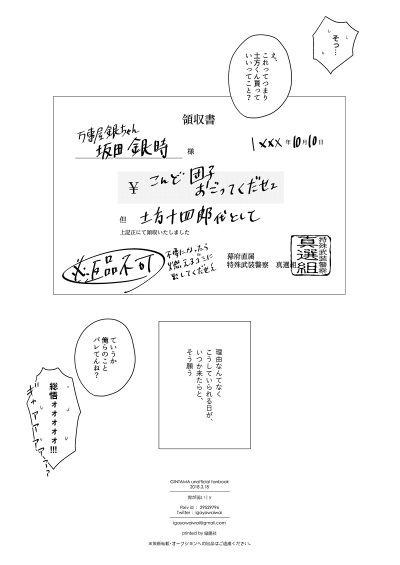 そっ…
え、
これってつまり
土方くん貰って
いいってこと?
領収書
万事屋銀ちゃん
坂田 銀時 様
1xxx 年 10 月 10 日
¥ こんど 団子
おごってくだせェ
但 土方十四郎代として
上記正にて領収いたしました
※返品不可
不要になったら
燃えるゴミに
出してくだせえ
幕府直属
特殊武装警察 真選組
特殊武装警察
真選組
ていうか
俺らのこと
バレてんね?
総悟
ォォォォォ!!!
ギャアアアアアー?
理由なんてなく
こうしていられる日が、
いつか来たらと、
そう願う
GINTAMA unofficial fanbook
2018.3.18
Pixiv id : 29539796
Twitter : igayowaiwai
igayowaiwai@gmail.com
printed by 緑陽社
※無断転載・オークションへの出品はご遠慮ください。